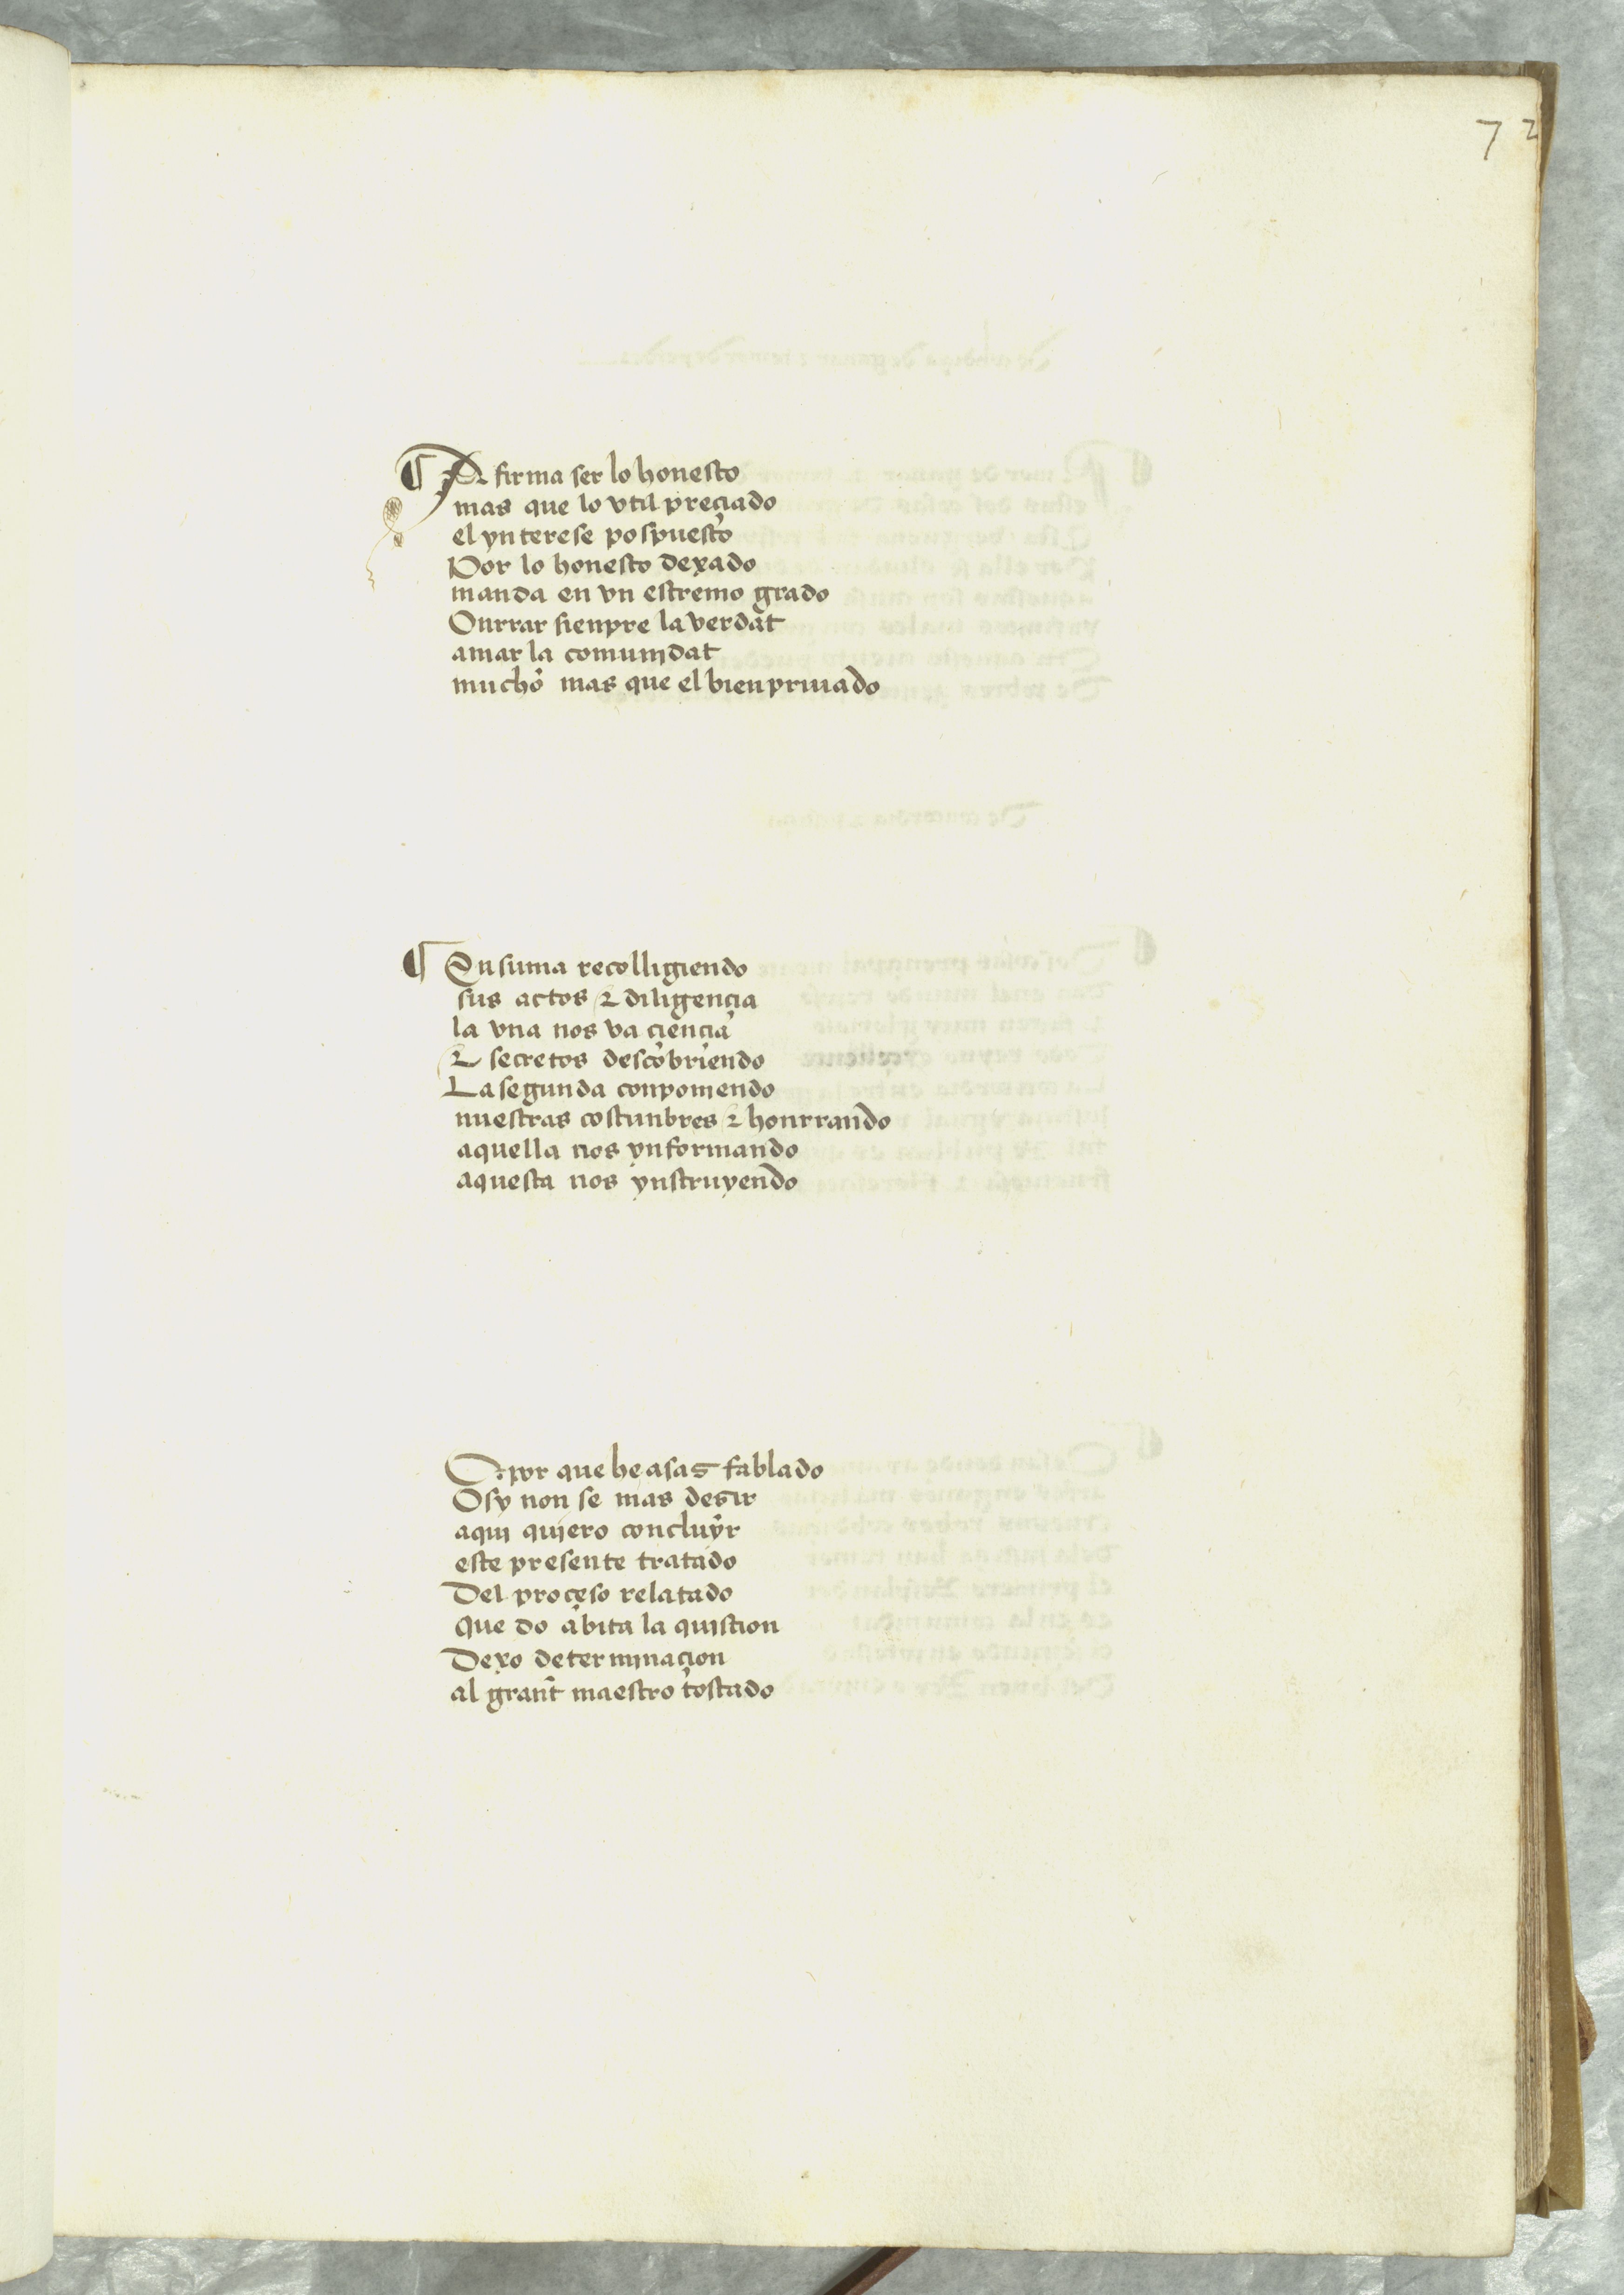 72
¶ Afirma ser lo honesto
mas que lo vtil preçiado
el ynterese pospuesto
Por lo honesto dexado
manda en vn estremo grado
Onrrar sienpre la verdat
amar la comunjdat
mucho mas que el bien priuado
¶ En suma recolligiendo
sus actos & diligençia
la vna nos va çiençia
& secretos descobriendo
La segunda conponiendo
nuestras costunbres & honrrando
aquella nos ynformando
aquesta nos ynstruyendo
O por que he asas fablado
O sy non se mas desir
aquj qujero concluyr
este presente tratado
Del proçeso relatado
que do abita la qujstion
Dexo determjnaçion
al grant maestro tostado